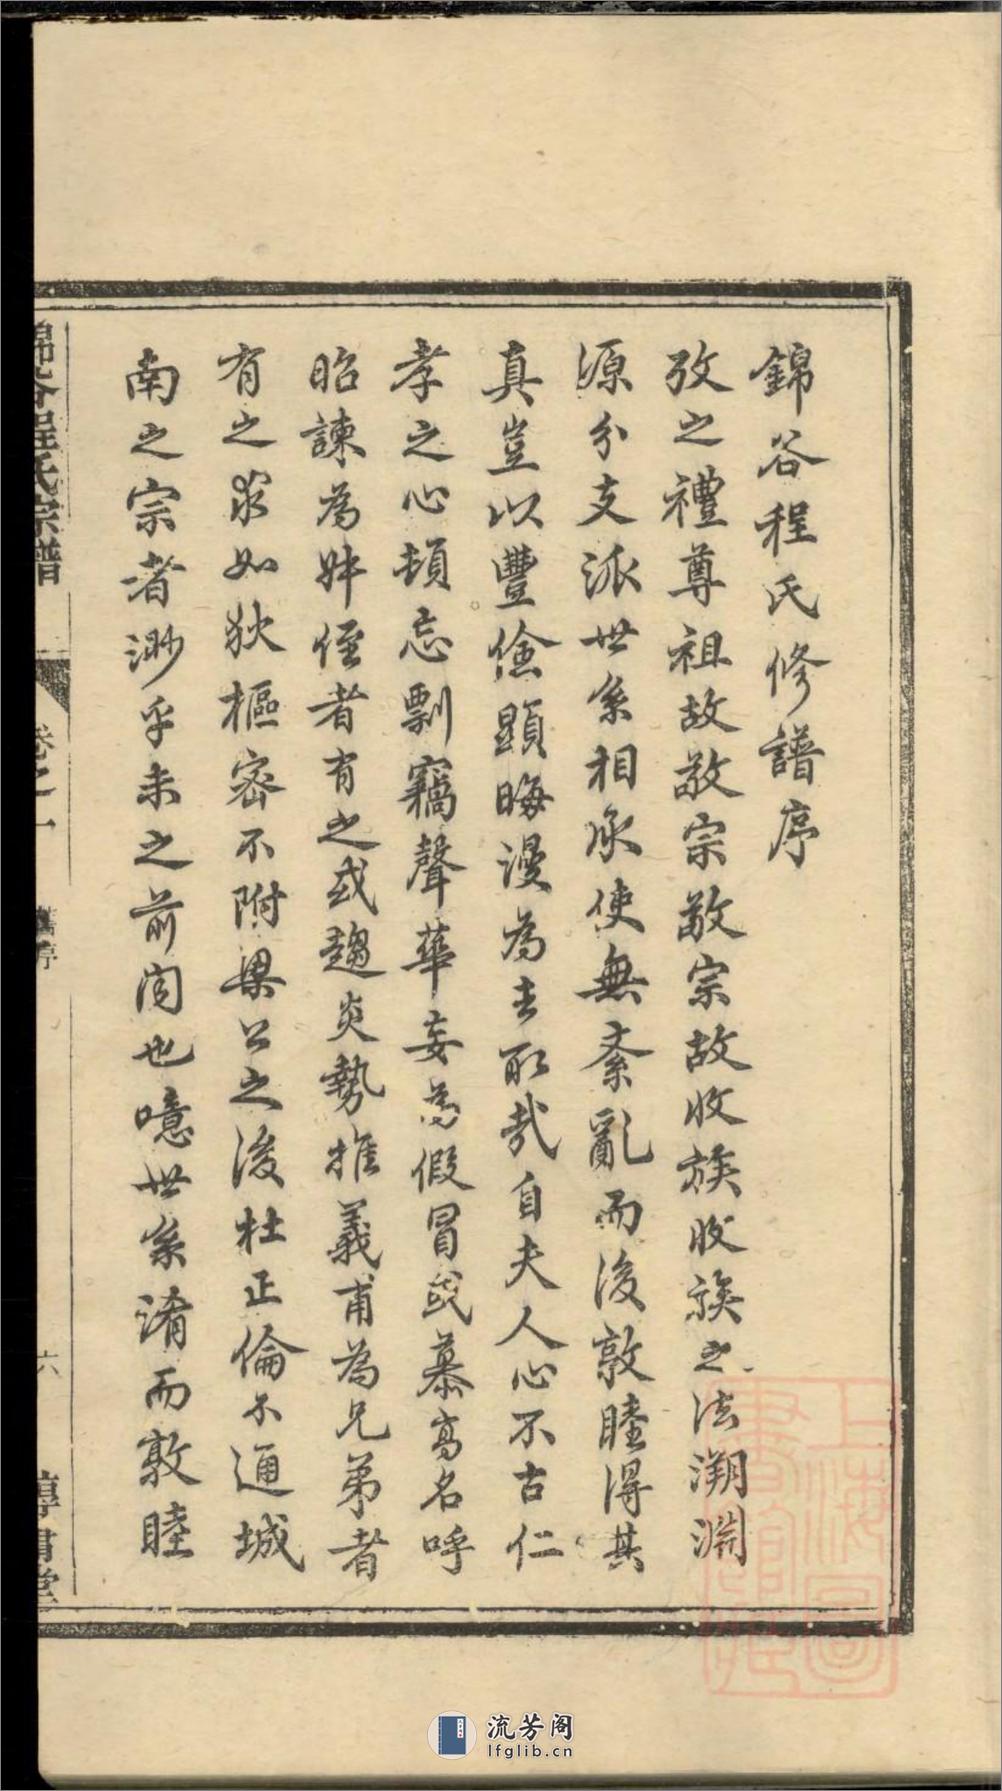 錦谷程氏修譜序
攷之禮尊祖故敬宗敬宗故收族收族之法溯淵
源分支派世系相承使無紊亂而後敦睦得其
真豈以豐儉顯晦漫為去取哉自夫人心不古仁
孝之心頓忘剽竊聲華妄為假冒或慕高名呼
昭諫為姊侄者有之或趨炎勢推義甫為兄弟者
有之求如狄樞密不附梁公之後杜正倫不通城
南之宗者渺乎未之前聞也噫世系淆而敦睦
錦谷程氏宗譜
卷之一
舊序
六
惇書堂
上海圖
書館藏
流芳阁
lfglib.cn